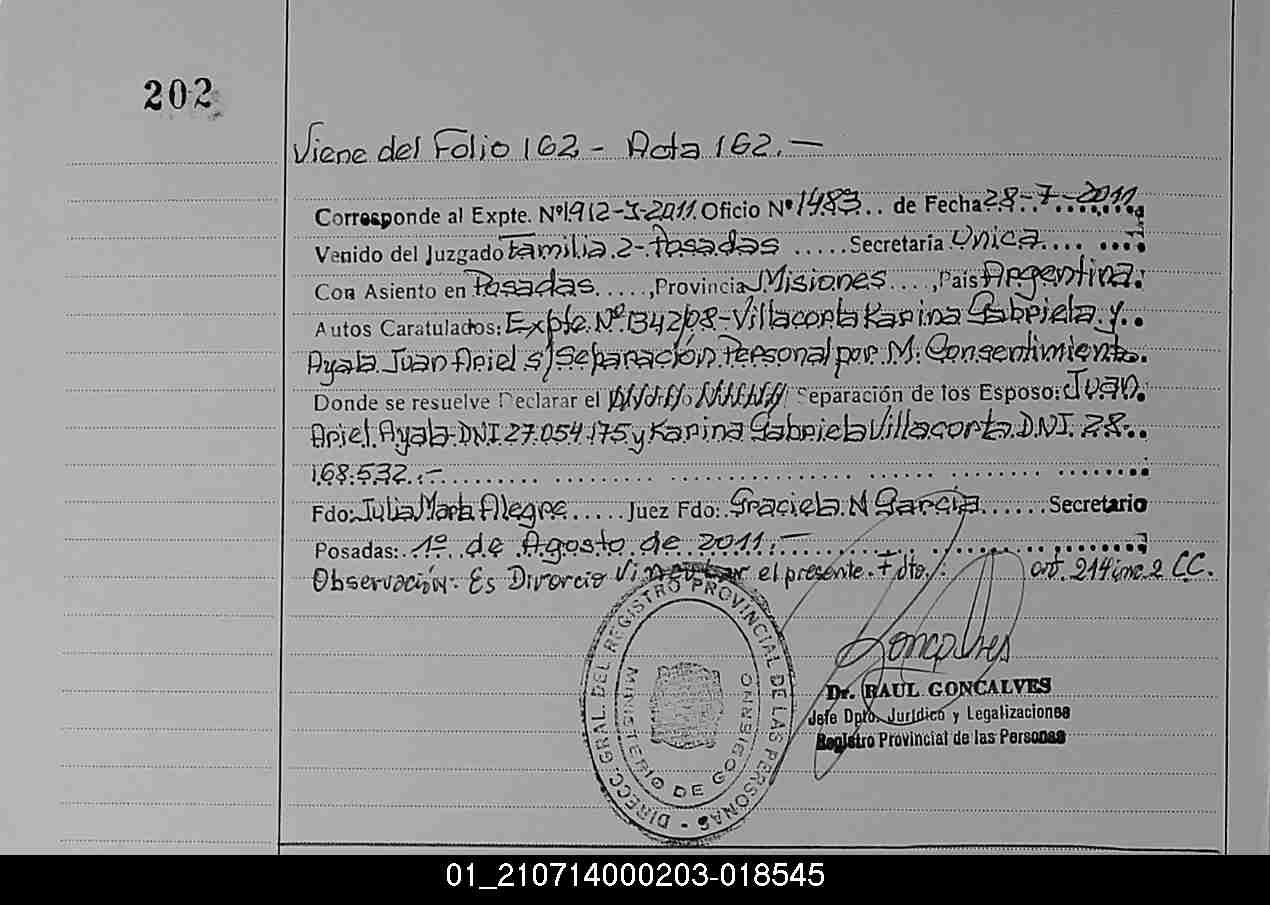 202
Viene del Folio 162 - Acta 162.-
Corresponde al Expte. Nº1912-J-2011. Oficio Nº 1483... de Fecha 28-7-2011
Venido del Juzgado Familia 2-Posadas .....Secretaria Unica.... ....
Con Asiento en Posadas.....,Provincia Misiones....,Pais Argentina.
Autos Caratulados: Expte. Nº 1342/08-Villacorta Karina Gabriela y..
Ayala Juan Ariel s/ Separación Personal por M. Consentimiento.
Donde se resuelve Declarar el Separación de los Esposo: Juan
Ariel Ayala DNI 27.054.175 y Karina Gabriela Villacorta DNI. 28..
168.532.-
Fdo: Julia Marta Alegre.....Juez Fdo: Graciela N Garcia......Secretario
Posadas: 1º de Agosto de 2011.-
Observación: Es Divorcio el presente. art. 214 inc 2 CC.
DIRECC. GRAL. DEL REGISTRO PROVINCIAL DE LAS PERSONAS -
MINISTERIO DE GOBIERNO
Goncalves
Dr. RAUL GONCALVES
Jefe Dpto. Jurídico y Legalizaciones
Registro Provincial de las Personas
01_210714000203-018545